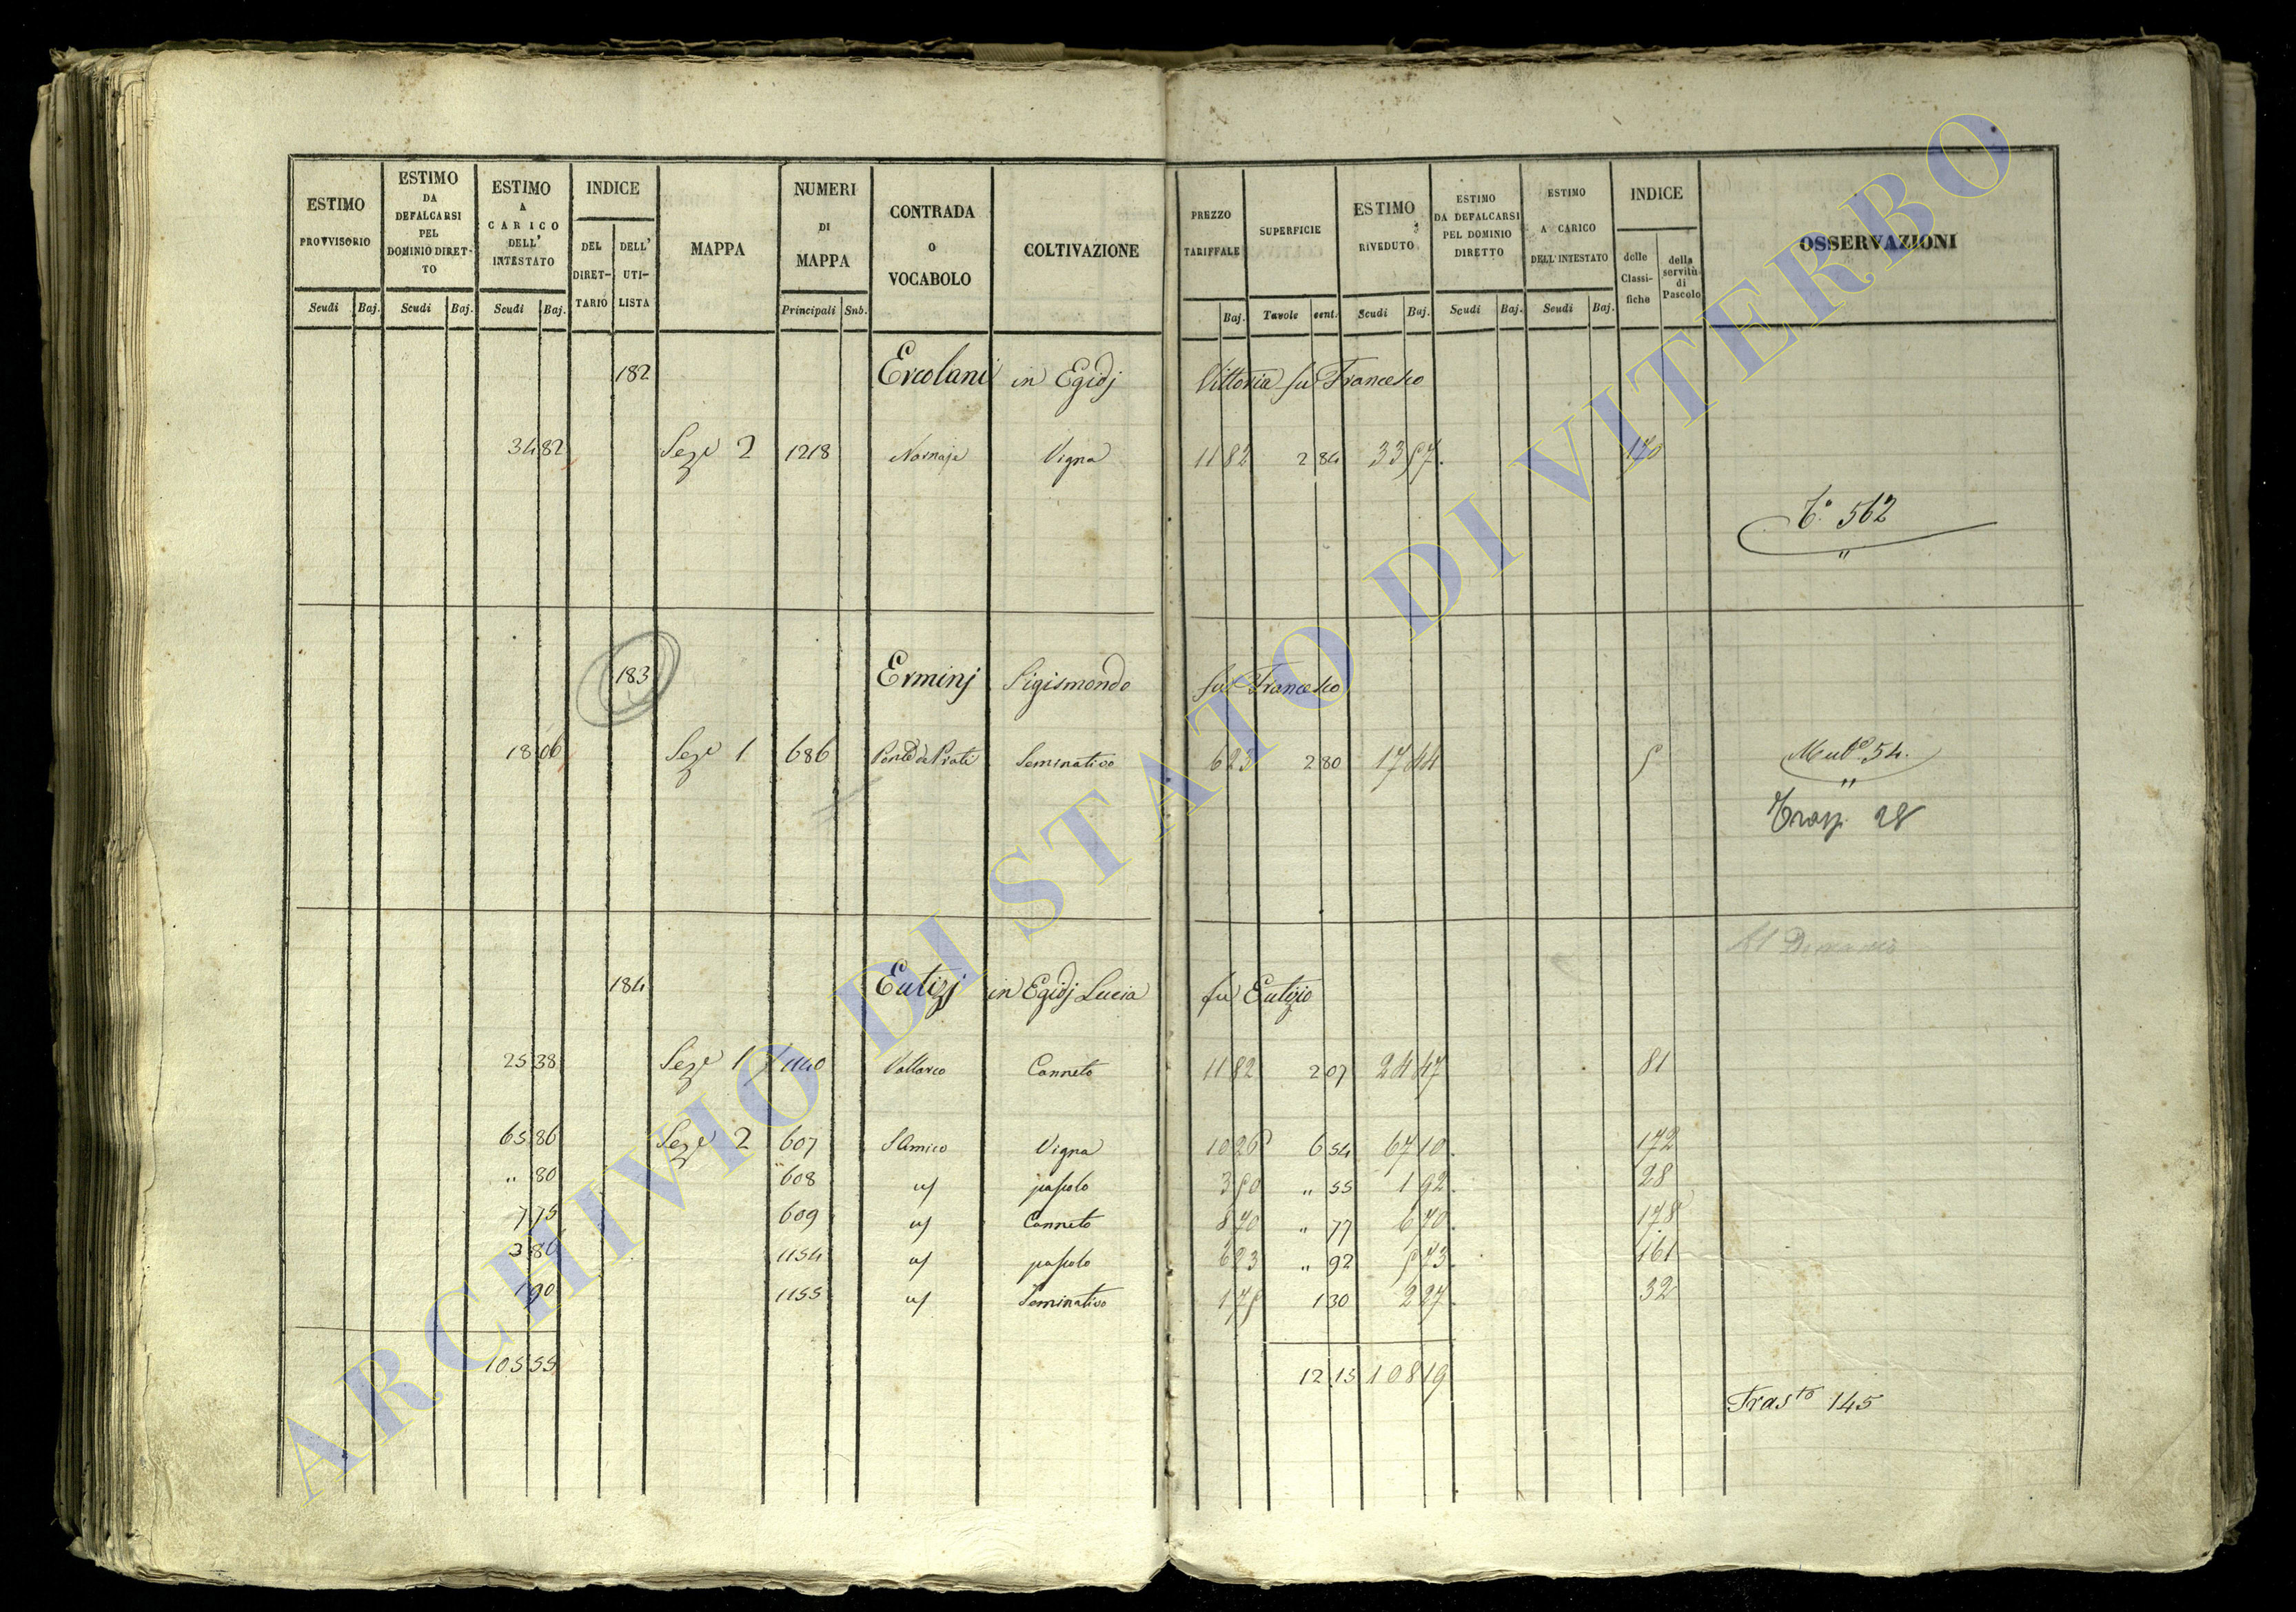 ESTIMO PROVVISORIO
ESTIMO DA DEFALCARSI PEL DOMINIO DIRET-TO
ESTIMO A CARICO DELL' INTESTATO
INDICE
DEL DIRET-TARIO
DELL' UTI-LISTA
MAPPA
NUMERI DI MAPPA
CONTRADA O VOCABOLO
COLTIVAZIONE
PREZZO TARIFFALE
SUPERFICIE
ESTIMO RIVEDUTO
ESTIMO DA DEFALCARSI PEL DOMINIO DIRETTO
ESTIMO A CARICO DELL'INTESTATO
INDICE
delle Classi-fiche
della servitù di Pascolo
OSSERVAZIONI
Scudi Baj. Scudi Baj. Scudi Baj. Principali Sub. Baj. Tavole cent. Scudi Baj. Scudi Baj. Scudi Baj.
182 Ercolani in Egidj Vittoria fu Francesco
34 82 Seze 2 1218 Vigna 11 82 2 84 33 57 170
To 562
183 Erminj Sigismondo fu Francesco
18 06 Seze 1 686 Seminativo 6 23 2 80 17 44 5 Mutе 54.
Trasp. 28
184 Eutizj in Egidj Lucia fu Eutizio
25 38 Seze 1 1140 Canneto 11 82 2 07 24 47 81
65 86 Seze 2 607 S Amico Vigna 10 26 6 54 67 10 172
" 80 608 pascolo 3 50 " 55 1 92 28
7 75 609 Canneto 8 70 " 77 6 70 178
3 86 1154 pascolo 6 23 " 92 5 73 161
1 90 1155 Seminativo 1 75 1 30 2 27 32
105 55 12 15 108 19
Trasto 145
ARCHIVIO DI STATO DI VITERBO